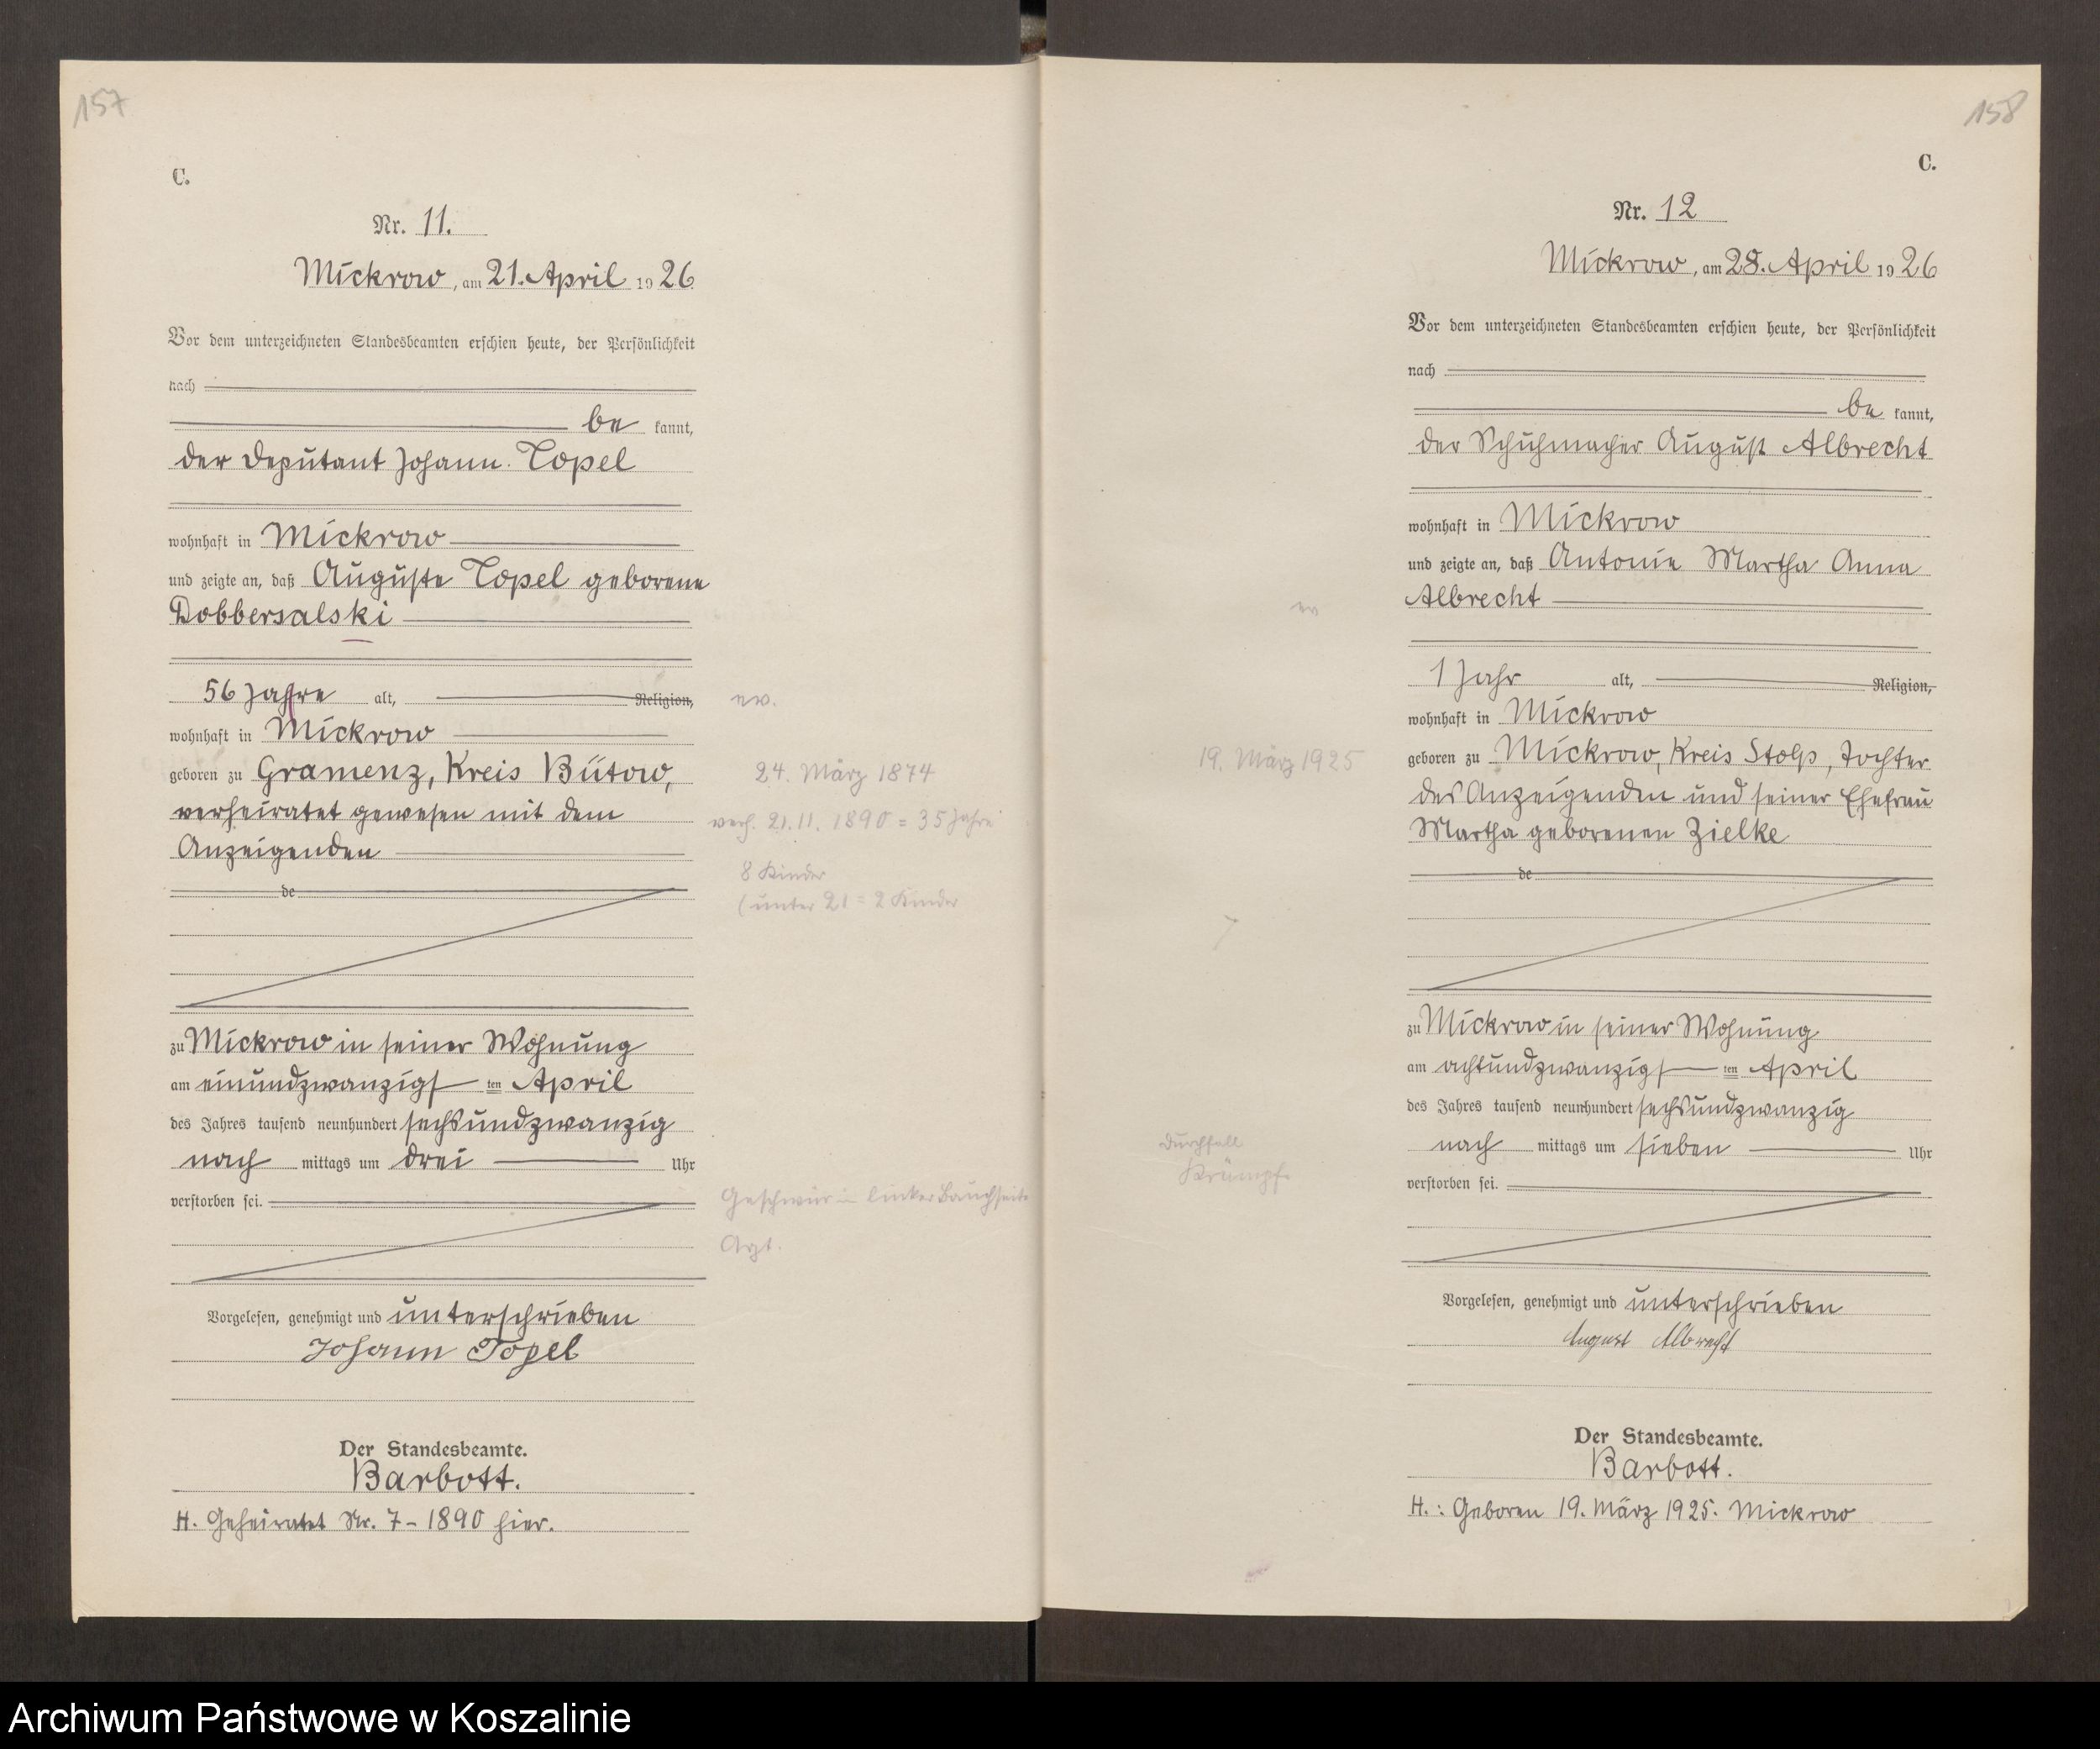 157
C.
Nr. 11.
Mickrow, am 21. April 1926
Vor dem unterzeichneten Standesbeamten erschien heute, der Persönlichkeit
nach
be kannt,
der Deputant Johann Topel
wohnhaft in Mickrow
und zeigte an, daß Auguste Topel geborene
Dobbersalski
56 Jahre alt, Religion,
ev.
wohnhaft in Mickrow
geboren zu Gramenz, Kreis Bütow,
24. März 1874
verheiratet gewesen mit dem
verh. 21.11.1890 = 35 Jahre
Anzeigenden
8 Kinder
de
(unter 21 = 2 Kinder
zu Mickrow in seiner Wohnung
am einundzwanzigs ten April
des Jahres tausend neunhundert sechsundzwanzig
nach mittags um drei Uhr
verstorben sei.
Geschwür in linker Bauchseite
Arzt.
Vorgelesen, genehmigt und unterschrieben
Johann Topel
Der Standesbeamte.
Barbott.
H. Geheiratet Nr. 7 - 1890 hier.
158
C.
Nr. 12
Mickrow, am 28. April 1926
Vor dem unterzeichneten Standesbeamten erschien heute, der Persönlichkeit
nach
be kannt,
der Schuhmacher August Albrecht
wohnhaft in Mickrow
und zeigte an, daß Antonie Martha Anna
Albrecht
ev
1 Jahr alt, Religion,
wohnhaft in Mickrow
geboren zu Mickrow, Kreis Stolp, Tochter
19. März 1925
des Anzeigenden und seiner Ehefrau
Martha geborenen Zielke
de
zu Mickrow in seiner Wohnung
am achtundzwanzigs ten April
des Jahres tausend neunhundert sechsundzwanzig
nach mittags um sieben Uhr
Durchfall
Krämpfe
verstorben sei.
Vorgelesen, genehmigt und unterschrieben
August Albrecht
Der Standesbeamte.
Barbott.
H.: Geboren 19. März 1925. Mickrow
Archiwum Państwowe w Koszalinie